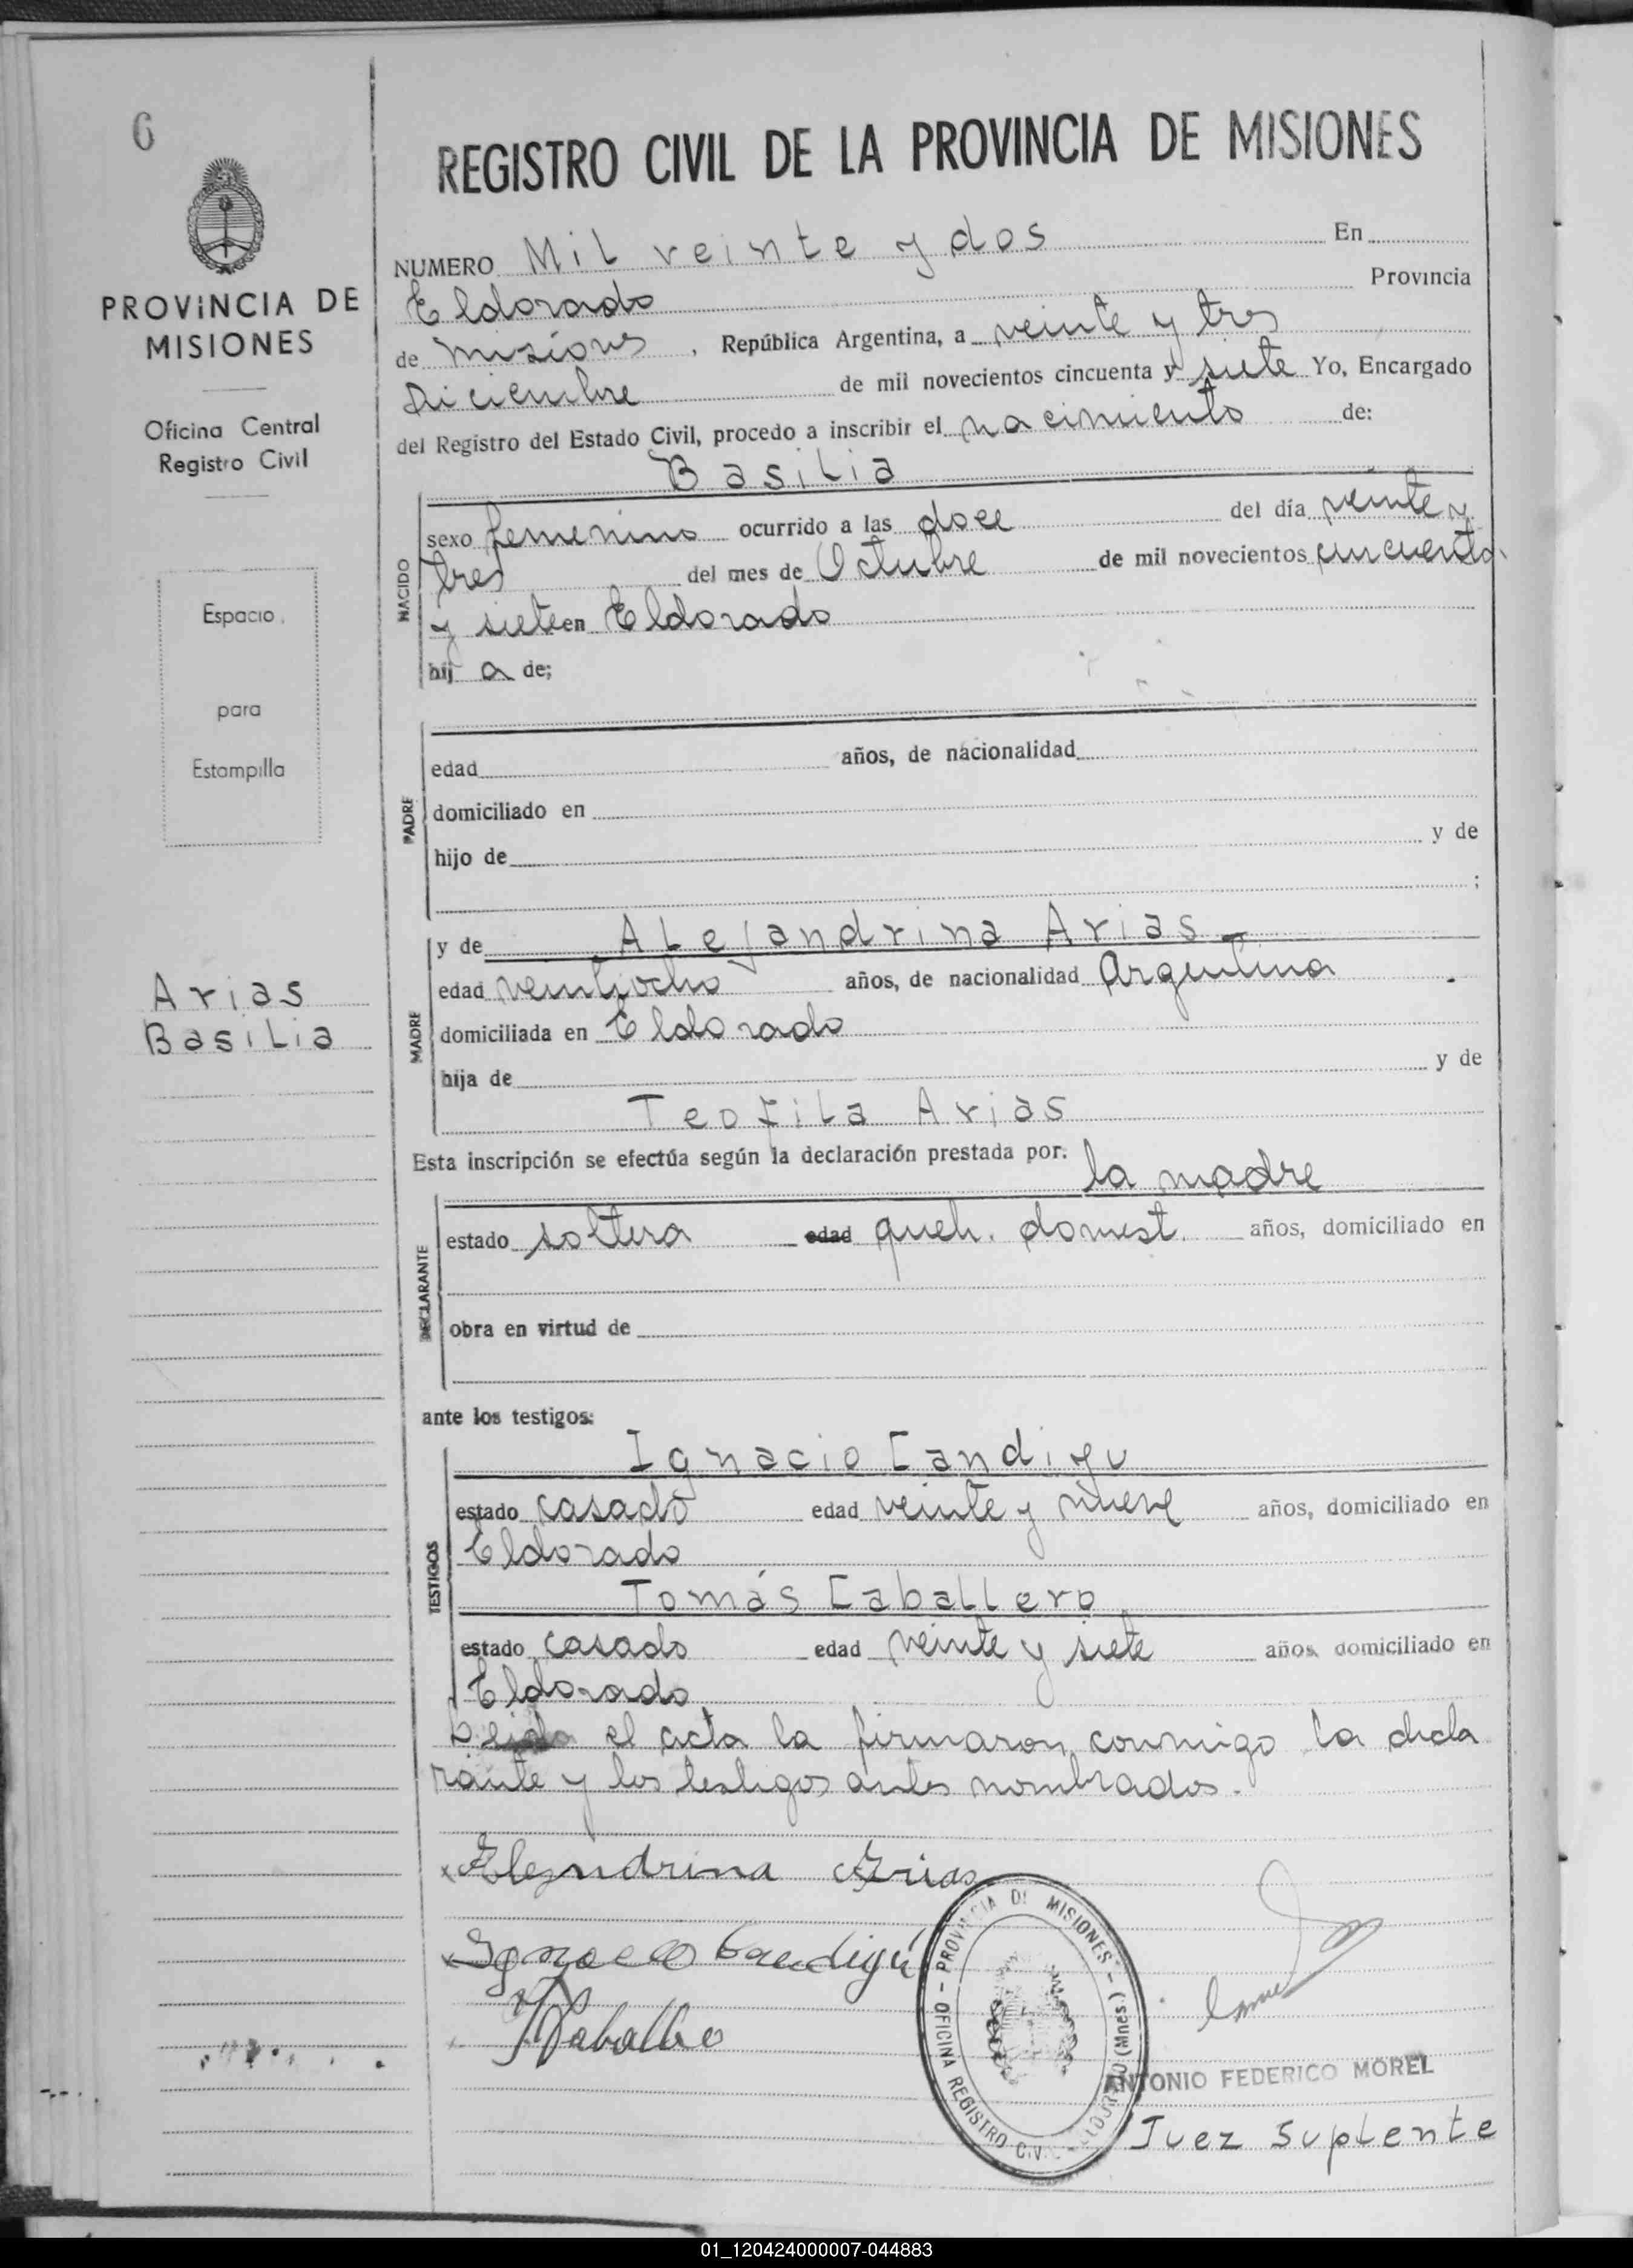 6
REGISTRO CIVIL DE LA PROVINCIA DE MISIONES
PROVINCIA DE
MISIONES
Oficina Central
Registro Civil
Espacio
para
Estampilla
Arias
Basilia
NUMERO Mil veinte y dos En
Eldorado Provincia
de misiones, República Argentina, a veinte y tres
Diciembre de mil novecientos cincuenta y siete Yo, Encargado
del Registro del Estado Civil, procedo a inscribir el nacimiento de:
Basilia
NACIDO
sexo femenino ocurrido a las doce del día veinte y
tres del mes de Octubre de mil novecientos cincuenta
y siete en Eldorado
hij a de;
PADRE
edad años, de nacionalidad
domiciliado en
hijo de y de
;
MADRE
y de Alejandrina Arias
edad veintiocho años, de nacionalidad Argentina
domiciliada en Eldorado
hija de y de
Teofila Arias
Esta inscripción se efectúa según la declaración prestada por:
la madre
DECLARANTE
estado soltera edad queh. domest. años, domiciliado en
obra en virtud de
ante los testigos:
TESTIGOS
Ignacio Candiyu
estado casado edad veinte y nueve años, domiciliado en
Eldorado
Tomás Caballero
estado casado edad veinte y siete años domiciliado en
Eldorado
Leida el acta la firmaron conmigo la decla
rante y los testigos antes nombrados.
Alejndrina Arias
Ignacio Candiyú
PROVINCIA DE MISIONES - OFICINA REGISTRO CIVIL ELDORADO (Mnes.)
ANTONIO FEDERICO MOREL
Juez Suplente
01_120424000007-044883